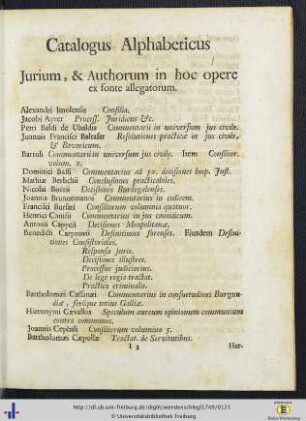 Catalogus Alphabeticus
Jurium, & Authorum in hoc opere
ex fonte allegatorum.
Alexandri Imolensis Consilia.
Jacobi Ayrer Process. Juridicus &c.
Petri Baldi de Ubaldis Commentarii in universum jus civile.
Joannis Francisci Balthasar Resolutiones practicæ in jus civile,
& Bavaricum.
Bartoli Commentarii in universum jus civile. Item Consilior.
volum. 2.
Dominici Bassi Commentarius ad 50. decisiones Imp. Just.
Mathiæ Berlichii Conclusiones practicabiles.
Nicolai Boerii Decisiones Burdegalenses.
Joannis Brunnemanni Commentarius in codicem.
Francisci Bursati Consiliorum volumina quatuor.
Henrici Canisii Commentarius in jus canonicum.
Antonii Capycii Decisiones Neapolitanæ.
Benedicti Carpzovii Definitiones forenses. Ejusdem Defini-
tiones Consistoriales.
Responsa juris.
Decisiones illustres.
Processus judiciarius.
De lege regia tractat.
Practica criminalis.
Bartholomæi Cassinæi Commentarius in consuetudines Burgun-
diæ, ferèque totius Galliæ.
Hieronymi Cævallos Speculum aureum opinionum communium
contra communes.
Joannis Cephali Consiliorum volumina 5.
Bartholomæi Cæpollæ Tractat. de Servitutibus.
I 3
Her-
http://dl.ub.uni-freiburg.de/diglit/wendenschlegl1749/0125
© Universitätsbibliothek Freiburg